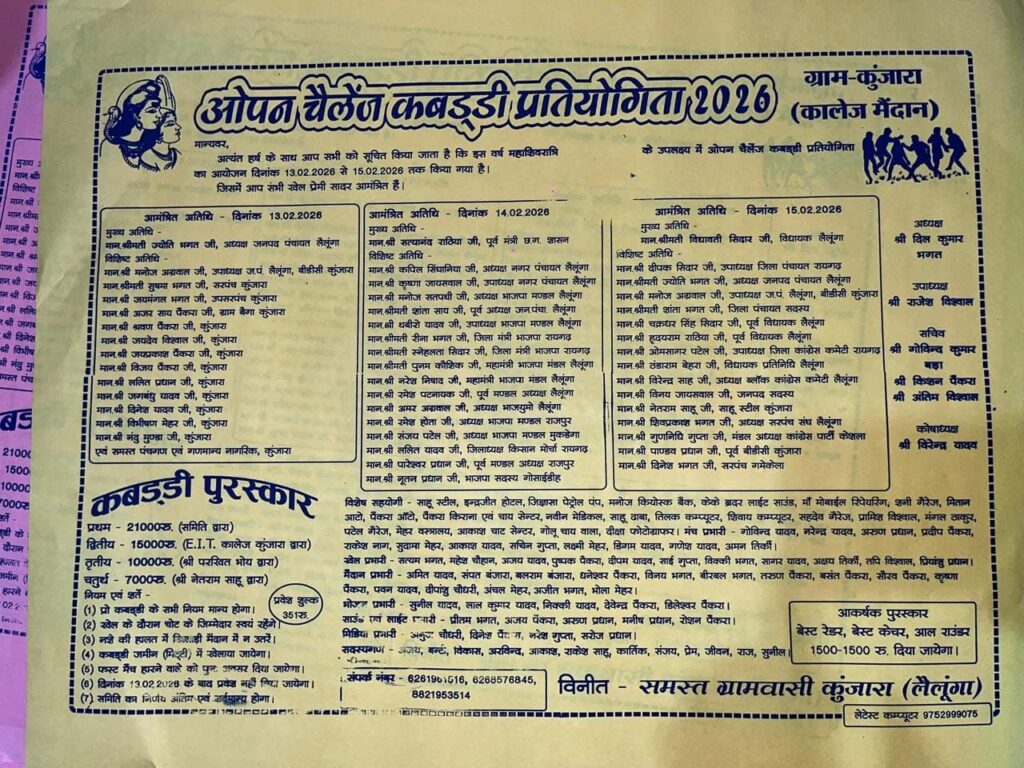 ओपन चैलेंज कबड्डी प्रतियोगिता 2026
ग्राम-कुंजारा
(कालेज मैंदान)
मान्यवर,
अत्यंत हर्ष के साथ आप सभी को सूचित किया जाता है कि इस वर्ष महाशिवरात्रि के उपलक्ष्य में ओपन चैलेंज कबड्डी प्रतियोगिता
का आयोजन दिनांक 13.02.2026 से 15.02.2026 तक किया गया है।
जिसमें आप सभी खेल प्रेमी सादर आमंत्रित हैं।
आमंत्रित अतिथि - दिनांक 13.02.2026
मुख्य अतिथि -
मान.श्रीमती ज्योति भगत जी, अध्यक्ष जनपद पंचायत लैलूंगा
विशिष्ट अतिथि -
मान.श्री मनोज अग्रवाल जी, उपाध्यक्ष ज.पं. लैलूंगा, बीडीसी कुंजारा
मान.श्रीमती सुषमा भगत जी, सरपंच कुंजारा
मान.श्री जयमंगल भगत जी, उपसरपंच कुंजारा
मान.श्री अजर साय पैंकरा जी, ग्राम बैगा कुंजारा
मान.श्री श्रवण पैंकरा जी, कुंजारा
मान.श्री जयदेव विश्वाल जी, कुंजारा
मान.श्री जयप्रकाश पैंकरा जी, कुंजारा
मान.श्री विजय पैंकरा जी, कुंजारा
मान.श्री ललित प्रधान जी, कुंजारा
मान.श्री जगबंधु यादव जी, कुंजारा
मान.श्री दिनेश यादव जी, कुंजारा
मान.श्री विभीषण मेहर जी, कुंजारा
मान.श्री नंदु मुण्डा जी, कुंजारा
एवं समस्त पंचगण एवं गणमान्य नागरिक, कुंजारा
आमंत्रित अतिथि - दिनांक 14.02.2026
मुख्य अतिथि -
मान.श्री सत्यानंद राठिया जी, पूर्व मंत्री छ.ग. शासन
विशिष्ट अतिथि -
मान.श्री कपिल सिंघानिया जी, अध्यक्ष नगर पंचायत लैलूंगा
मान.श्री कृष्णा जायसवाल जी, उपाध्यक्ष नगर पंचायत लैलूंगा
मान.श्री मनोज सतपथी जी, अध्यक्ष भाजपा मण्डल लैलूंगा
मान.श्रीमती शांता साय जी, पूर्व अध्यक्ष जन.पंचा. लैलूंगा
मान.श्री धबीरो यादव जी, उपाध्यक्ष भाजपा मण्डल लैलूंगा
मान.श्रीमती रीना भगत जी, जिला मंत्री भाजपा रायगढ़
मान.श्रीमती स्नेहलता सिदार जी, जिला मंत्री भाजपा रायगढ़
मान.श्रीमती पुनम कौशिक जी, महामंत्री भाजपा मंडल लैलूंगा
मान.श्री नरेश निषाद जी, महामंत्री भाजपा मंडल लैलूंगा
मान.श्री रमेश पटनायक जी, पूर्व मण्डल अध्यक्ष लैलूंगा
मान.श्री अमर अग्रवाल जी, अध्यक्ष भाजयुमो लैलूंगा
मान.श्री रमेश होता जी, अध्यक्ष भाजपा मण्डल राजपुर
मान.श्री संजय पटेल जी, अध्यक्ष भाजपा मण्डल मुकडेगा
मान.श्री ललित यादव जी, जिलाध्यक्ष किसान मोर्चा रायगढ़
मान.श्री पारेश्वर प्रधान जी, पूर्व मण्डल अध्यक्ष राजपुर
मान.श्री नूतन प्रधान जी, भाजपा सदस्य गोसाईडीह
आमंत्रित अतिथि - दिनांक 15.02.2026
मुख्य अतिथि -
मान.श्रीमती विद्यावती सिदार जी, विधायक लैलूंगा
विशिष्ट अतिथि -
मान.श्री दीपक सिदार जी, उपाध्यक्ष जिला पंचायत रायगढ़
मान.श्रीमती ज्योति भगत जी, अध्यक्ष जनपद पंचायत लैलूंगा
मान.श्री मनोज अग्रवाल जी, उपाध्यक्ष ज.पं. लैलूंगा, बीडीसी कुंजारा
मान.श्रीमती शांता भगत जी, जिला पंचायत सदस्य
मान.श्री चक्रधर सिंह सिदार जी, पूर्व विधायक लैलूंगा
मान.श्री हृदयराम राठिया जी, पूर्व विधायक लैलूंगा
मान.श्री ओमसागर पटेल जी, उपाध्यक्ष जिला कांग्रेस कमेटी रायगढ़
मान.श्री ठंडाराम बेहरा जी, विधायक प्रतिनिधि लैलूंगा
मान.श्री विरेन्द्र साह जी, अध्यक्ष ब्लॉक कांग्रेस कमेटी लैलूंगा
मान.श्री विनय जायसवाल जी, जनपद सदस्य
मान.श्री नेतराम साहू जी, साहू स्टील कुंजारा
मान.श्री शिवप्रकाश भगत जी, अध्यक्ष सरपंच संघ लैलूंगा
मान.श्री गुणनिधि गुप्ता जी, मंडल अध्यक्ष कांग्रेस पार्टी कोड़ासिया
मान.श्री पाण्डव प्रधान जी, पूर्व बीडीसी कुंजारा
मान.श्री दिनेश भगत जी, सरपंच गमेकेला
अध्यक्ष
श्री दिल कुमार
भगत
उपाध्यक्ष
श्री राजेश विश्वाल
सचिव
श्री गोविन्द कुमार
बड़ा
श्री किशन पैंकरा
श्री अंतिम विश्वाल
कोषाध्यक्ष
श्री विरेन्द्र यादव
कबड्डी पुरस्कार
प्रथम - 21000रु. (समिति द्वारा)
द्वितीय - 15000रु. (E.I.T. कालेज कुंजारा द्वारा)
तृतीय - 10000रु. (श्री परखित भोय द्वारा)
चतुर्थ - 7000रु. (श्री नेतराम साहू द्वारा)
नियम एवं शर्ते -
(1) प्रो कबड्डी के सभी नियम मान्य होगा।
(2) खेल के दौरान चोट के जिम्मेदार स्वयं रहेंगे।
(3) नशे की हालत में खिलाड़ी मैदान में न उतरें।
(4) कबड्डी जमीन (मिट्टी) में खेलाया जायेगा।
(5) फस्ट मैंच हारने वाले को पुनः अवसर दिया जायेगा।
(6) दिनांक 13.02.2026 के बाद प्रवेश नहीं लिया जायेगा।
(7) समिति का निर्णय अंतिम एवं सर्वमान्य होगा।
प्रवेश शुल्क
351रु.
विशेष सहयोगी - साहू स्टील, इन्द्रजीत होटल, जिज्ञासा पेट्रोल पंप, मनोज कियोस्क बैंक, केके ब्रदर लाईट साउंड, माँ मोबाईल रिपेयरिंग, शनी गैरेज, मितान
आटो, पैंकरा ऑटो, पैंकरा किराना एवं चाय सेन्टर, नवीन मेडिकल, साहू ढाबा, तिलक कम्प्यूटर, शिवाय कम्प्यूटर, सहदेव गैरेज, प्रामिश विश्वाल, मंगल ठाकुर,
पटेल गैरेज, मेहर वस्त्रालय, आकाश चाट सेन्टर, गोलू चाय वाला, दीक्षा फोटोग्राफर। मंच प्रभारी - गोविन्द यादव, नरेन्द्र यादव, अरुण प्रधान, प्रदीप पैंकरा,
राकेश नाग, सुदामा मेहर, आकाश यादव, सचिन गुप्ता, लक्ष्मी मेहर, डिगम यादव, गणेश यादव, अमन तिर्की।
खेल प्रभारी - सत्यम भगत, महेश चौहान, अजय यादव, पुष्पक पैंकरा, दीपम यादव, साई गुप्ता, विक्की भगत, सागर यादव, अक्षय तिर्की, तपि विश्वाल, प्रियांशु प्रधान।
मैंदान प्रभारी - अमित यादव, संपत बंजारा, बलराम बंजारा, धनेश्वर पैंकरा, विनय भगत, बीरबल भगत, तरुण पैंकरा, बसंत पैंकरा, सौरव पैंकरा, कृष्णा
पैंकरा, पवन यादव, दीपांशु चौधरी, अंचल मेहर, अजीत भगत, भोला मेहर।
भोजन प्रभारी - सुनील यादव, लाल कुमार यादव, निक्की यादव, देवेन्द्र पैंकरा, डिलेश्वर पैंकरा।
साउंड एवं लाईट प्रभारी - प्रीतम भगत, अजय पैंकरा, अरुण प्रधान, मनीष प्रधान, रोशन पैंकरा।
मिडिया प्रभारी - चौधरी, दिनेश पैंकरा, नरेश गुप्ता, सरोज प्रधान।
सदस्यगण - अजय, बन्टी, विकास, अरविन्द, आकाश, राकेश साहू, कार्तिक, संजय, प्रेम, जीवन, राज, सुनील।
आकर्षक पुरस्कार
बेस्ट रेडर, बेस्ट केचर, आल राउंडर
1500-1500 रु. दिया जायेगा।
संपर्क नंबर - 6268576845,
8821953514
विनीत - समस्त ग्रामवासी कुंजारा (लैलूंगा)
लेटेस्ट कम्प्यूटर 9752999075